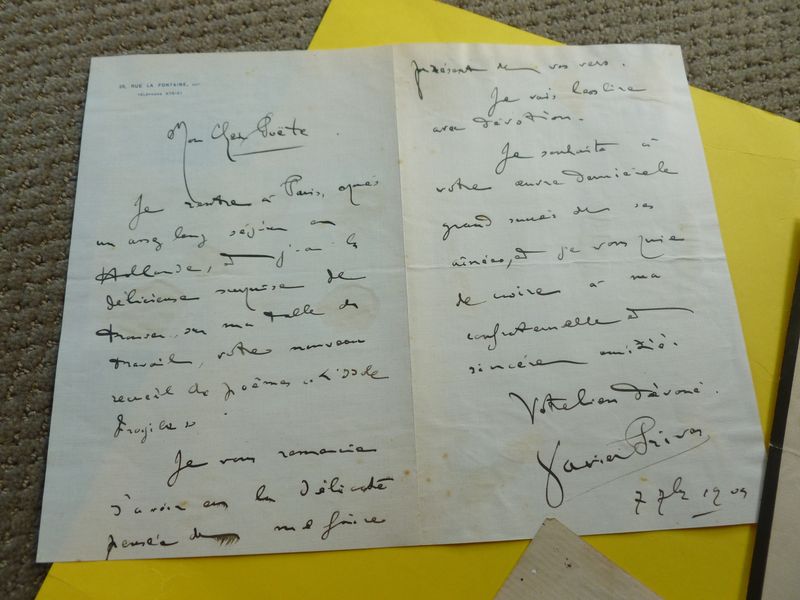 29, RUE LA FONTAINE,
TÉLÉPHONE
Mon Cher Poète.
Je rentre à Paris, après
un assez long séjour en
Hollande, et j'ai la
délicieuse surprise de
trouver sur ma table de
travail, votre nouveau
recueil de poèmes « L'Idole
Fragile »
Je vous remercie
d'avoir eu la délicate
pensée de me faire
présent de vos vers.
Je vais les lire
avec dévotion.
Je souhaite à
votre œuvre dernière le
grand succès de ses
aînées, et je vous prie
de croire à ma
confraternelle et
sincère amitié.
Votre bien dévoué.
Xavier Privas
7 7bre 1909